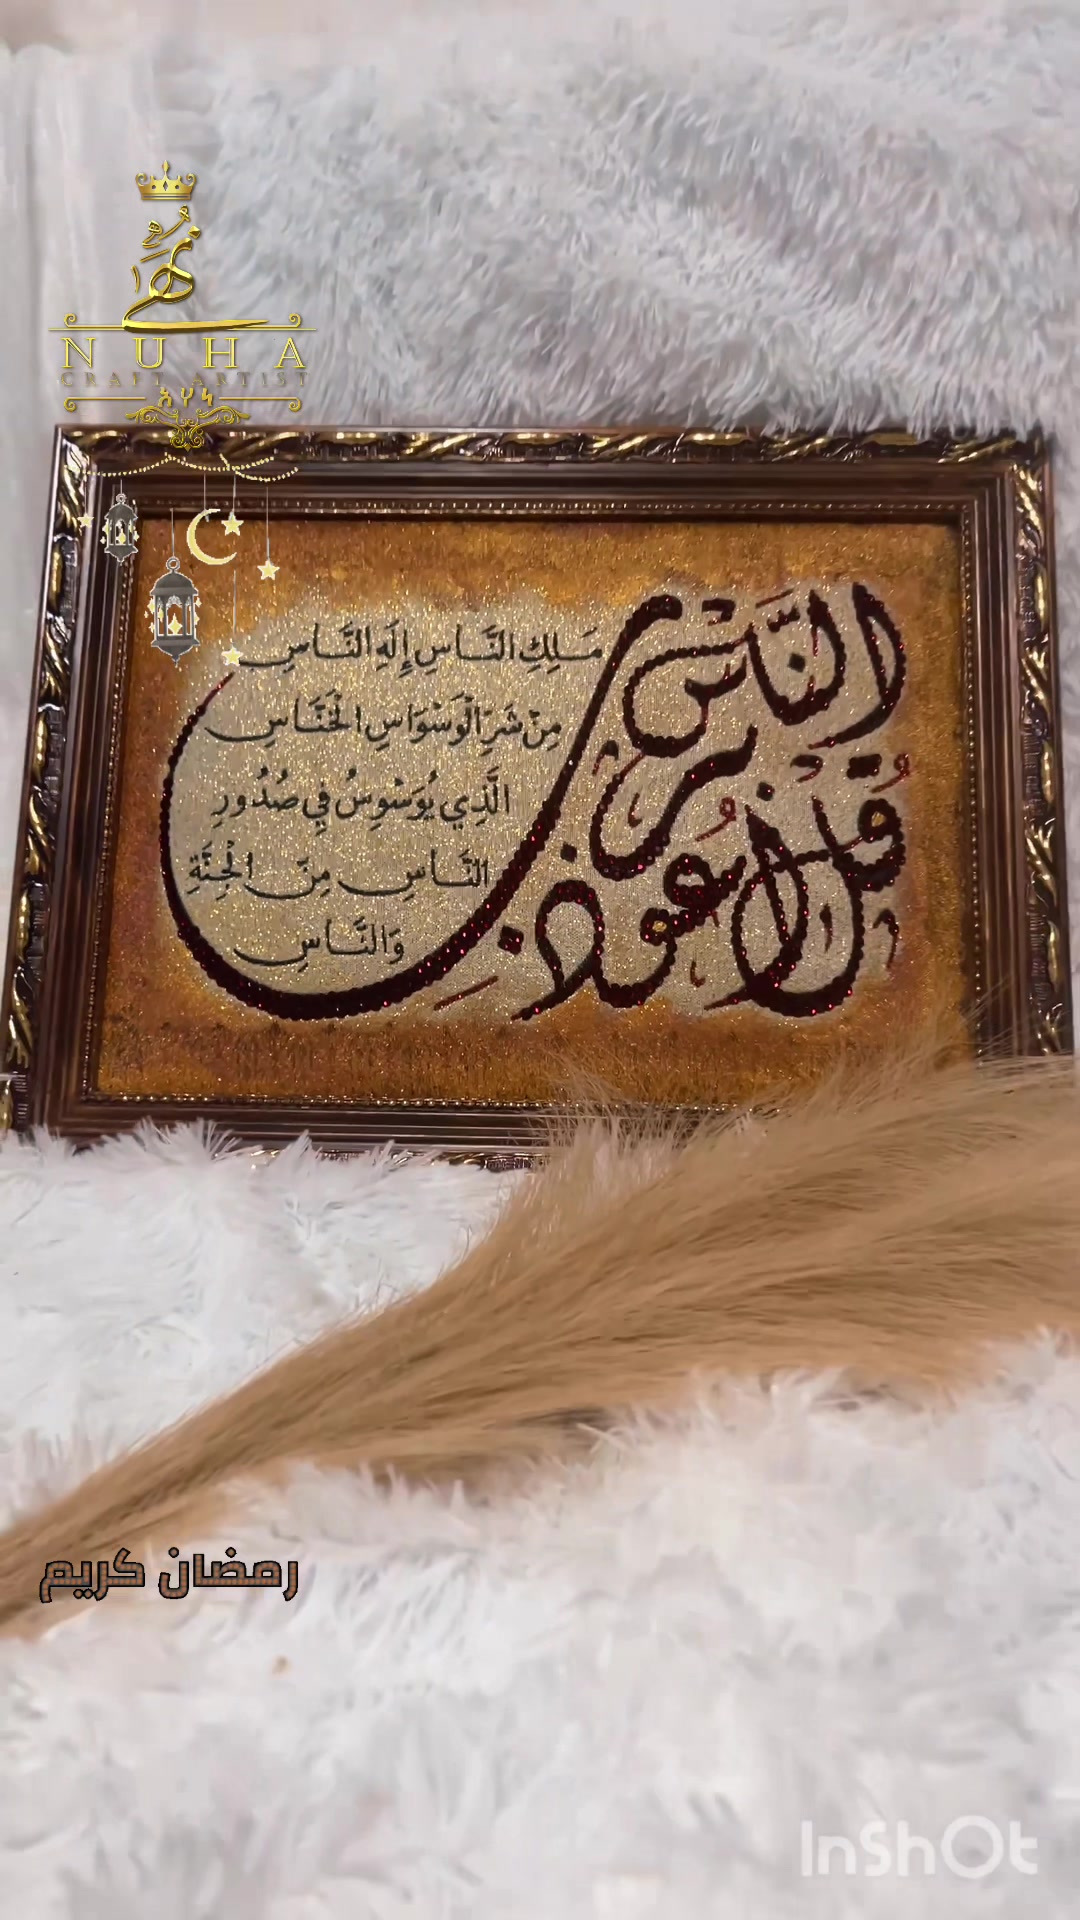 نهى
NUHA
CRAFT ARTIST
قل أعوذ برب الناس
مَلِكِ النَّاسِ إِلَهِ النَّاسِ
مِنْ شَرِّ الْوَسْوَاسِ الْخَنَّاسِ
الَّذِي يُوَسْوِسُ فِي صُدُورِ
النَّاسِ مِنَ الْجِنَّةِ
وَالنَّاسِ
رمضان كريم
InShOt